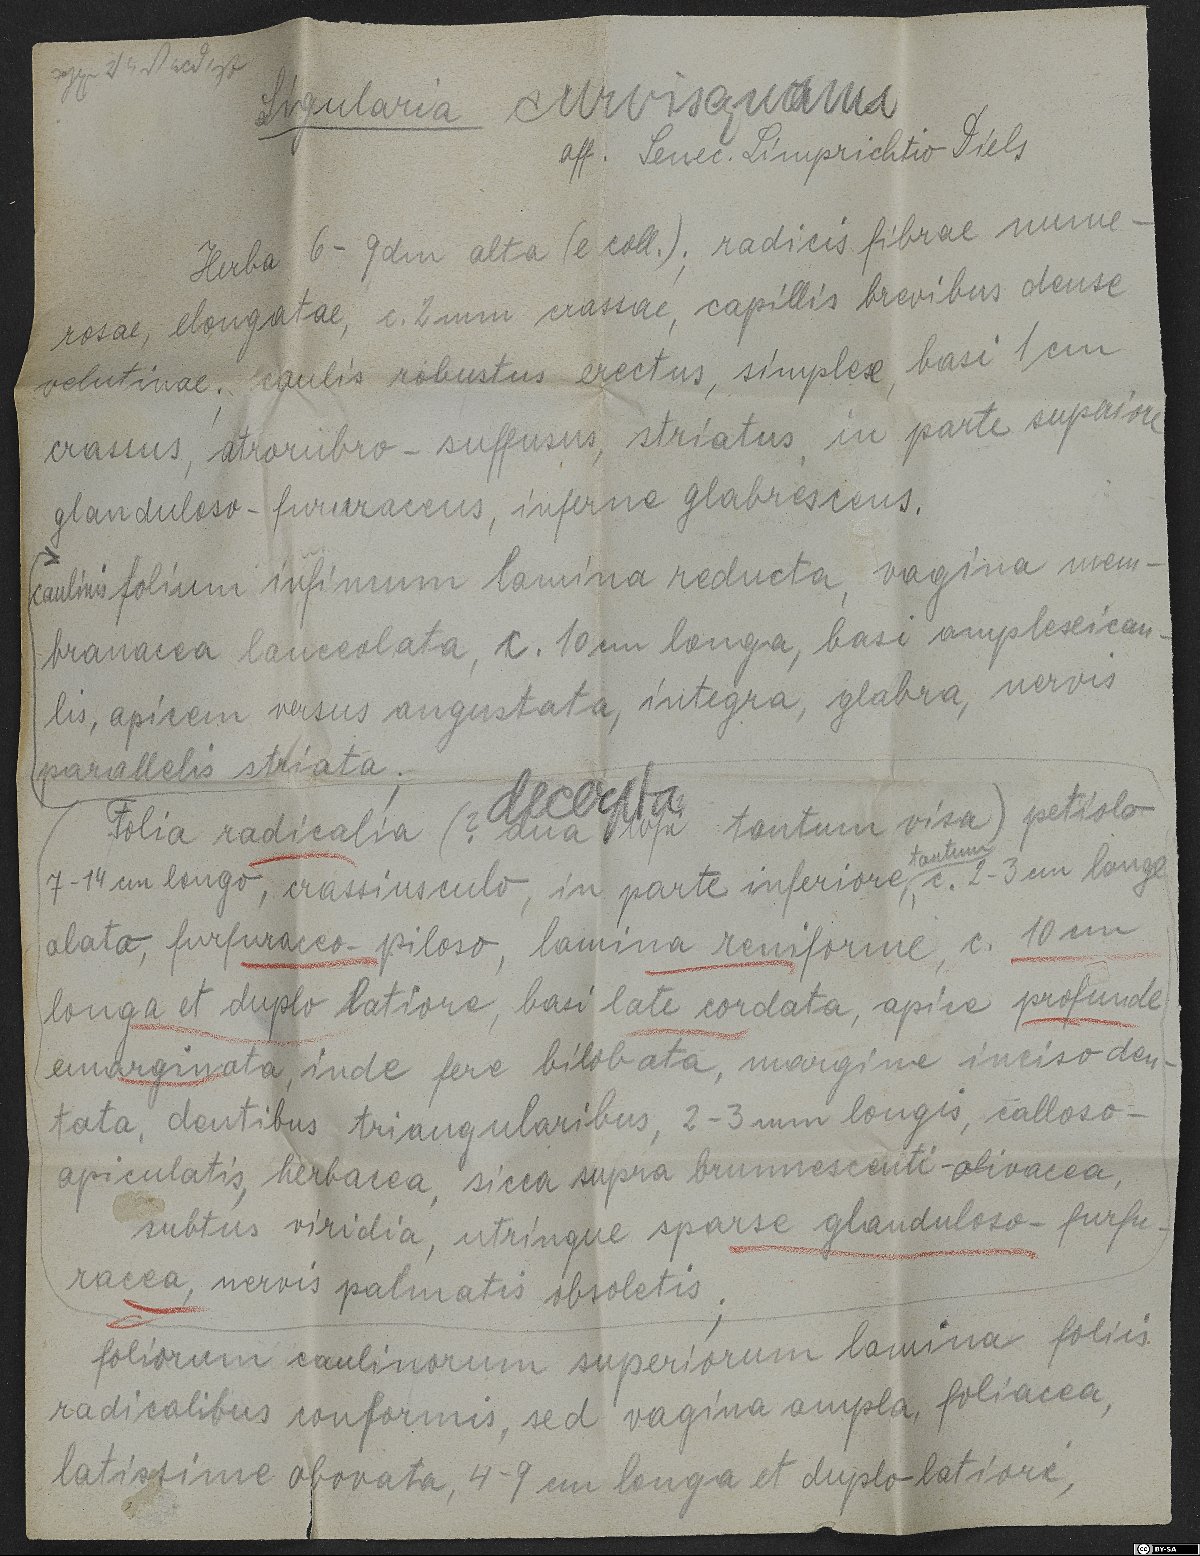 Ligularia curvisquama
aff. Senec. Limprichtio Diels
Herba 6-9dm alta (e coll.); radicis fibrae nume-
rosae, elongatae, c. 2mm crassae, capillis brevibus dense
velutinae; caulis robustus erectus, simplex, basi 1cm
crassus, atrorubro-suffusus, striatus, in parte superiore
glanduloso-furfuraceus, inferne glabrescens.
caulinis folium infimum lamina reducta, vagina mem-
branacea lanceolata, c. 10cm longa, basi amplexicau-
lis, apicem versus angustata, integra, glabra, nervis
parallelis striata;
decerpta
Folia radicalia (? dua tantum visa) petiolo
tantum
7-14 cm longo, crassiusculo, in parte inferiore, c. 2-3 cm longe
alata, furfuraceo-piloso, lamina reniforme, c. 10 cm
longa et duplo latiore, basi late cordata, apice profunde
emarginata, inde fere bilobata, margine inciso den-
tata, dentibus triangularibus, 2-3mm longis, calloso-
apiculatis, herbacea, sicca supra brunnescenti-olivacea,
subtus viridia, utrinque sparse glanduloso-furfu-
racea, nervis palmatis obsoletis;
foliorum caulinorum superiorum lamina foliis
radicalibus conformis, sed vagina ampla, foliacea,
latissime obovata, 4-9 cm longa et duplo-latiore,
BY-SA